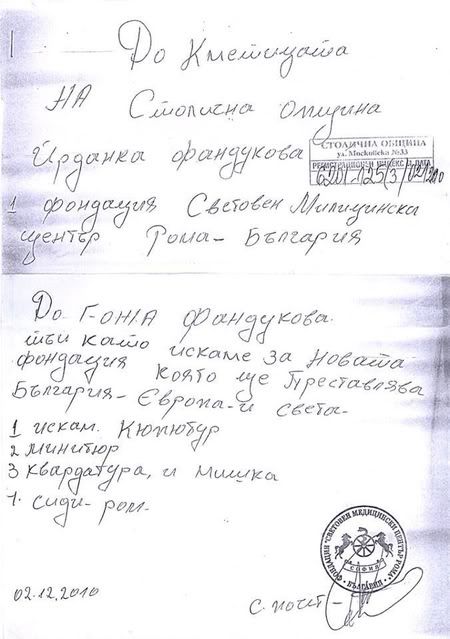 До Кметицата
НА Столична опщина
Йрданка фандукова
СТОЛИЧНА ОБЩИНА
ул. Московска №33
РЕГИСТРАЦИОНЕН ИНДЕКС И ДАТА
1 фондация Световен Милицински
център Рома - България
До Г-ОЖА фандукова.
тъи като искаме за новата
фондация която ще Преставлява
България - Европа - и света -
1 искам. Кюпютур
2 минитюр
3 квардатура, и мишка
1. сиди - ром -
ФОНДАЦИЯ "СВЕТОВЕН МЕДИЦИНСКИ ЦЕНТЪР РОМА" - БЪЛГАРИЯ
СОФИЯ
02.12,2010
с. почит -